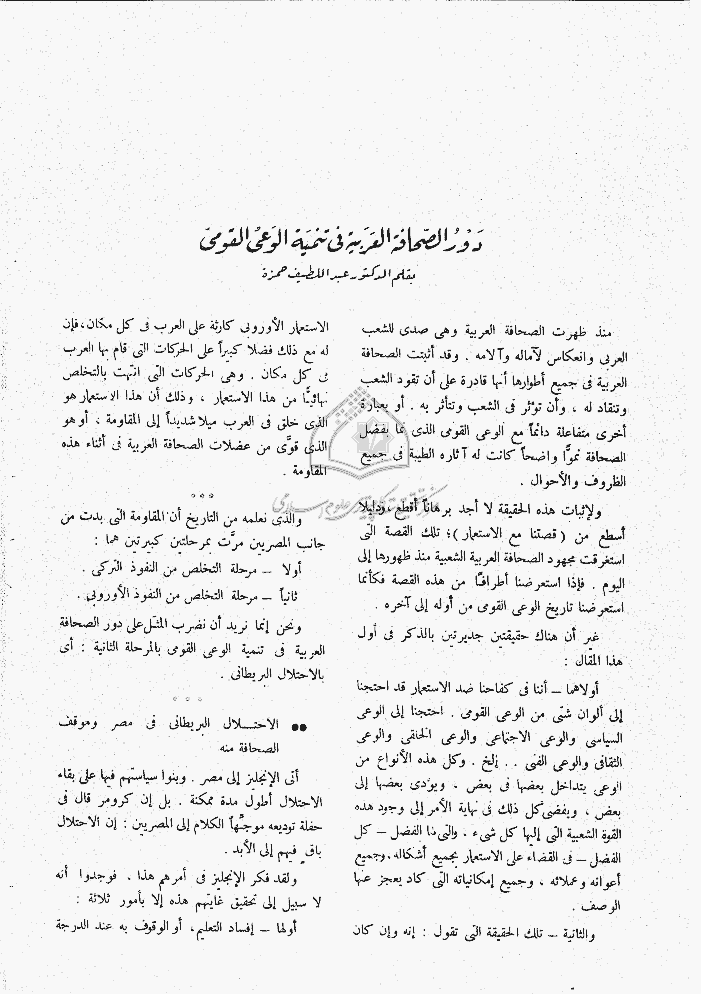 دَوْرُ الصّحافة العَربيّة فى تنميَة الوَعْى القومىّ
بقلم الدكتور عبد اللطيف حمزة
منذ ظهرت الصحافة العربية وهى صدى للشعب
العربى وانعكاس لآماله وآلامه . وقد أثبتت الصحافة
العربية فى جميع أطوارها أنها قادرة على أن تقود الشعب
وتنقاد له ، وأن تؤثر فى الشعب وتتأثر به . أو بعبارة
أخرى متفاعلة دائماً مع الوعى القومى الذى نما بفضل
الصحافة نموًّا واضحاً كانت له آثاره الطيبة فى جميع
الظروف والأحوال .
ولإثبات هذه الحقيقة لا أجد برهاناً أقطع ، ودليلا
أسطع من ( قصتنا مع الاستعمار ) ؛ تلك القصة التى
استغرقت مجهود الصحافة العربية الشعبية منذ ظهورها إلى
اليوم . فإذا استعرضنا أطرافاً من هذه القصة فكأنما
استعرضنا تاريخ الوعى القومى من أوله إلى آخره .
غير أن هناك حقيقتين جديرتين بالذكر فى أول
هذا المقال :
أولاهما – أننا فى كفاحنا ضد الاستعمار قد احتجنا
إلى ألوان شتى من الوعى القومى . احتجنا إلى الوعى
السياسى والوعى الاجتماعى والوعى الخلقى والوعى
الثقافى والوعى الفنى . . إلخ . وكل هذه الأنواع من
الوعى يتداخل بعضها فى بعض ، ويؤدى بعضها إلى
بعض ، ويفضى كل ذلك فى نهاية الأمر إلى وجود هذه
القوة الشعبية التى إليها كل شىء ، والتى لها الفضل – كل
الفضل – فى القضاء على الاستعمار بجميع أشكاله ، وجميع
أعوانه وعملائه ، وجميع إمكانياته التى كاد يعجز عنها
الوصف .
والثانية – تلك الحقيقة التى تقول : إنه وإن كان
الاستعمار الأوروبى كارثة على العرب فى كل مكان ، فإن
له مع ذلك فضلا كبيراً على الحركات التى قام بها العرب
فى كل مكان . وهى الحركات التى انتهت بالتخلص
نهائيًّا من هذا الاستعمار ، وذلك أن هذا الاستعمار هو
الذى خلق فى العرب ميلا شديداً إلى المقاومة ، أو هو
الذى قوَّى من عضلات الصحافة العربية فى أثناء هذه
المقاومة .
* * *
والذى نعلمه من التاريخ أن المقاومة التى بدت من
جانب المصريين مرَّت بمرحلتين كبيرتين هما :
أولا – مرحلة التخلص من النفوذ التركى .
ثانياً – مرحلة التخلص من النفوذ الأوروبى .
ونحن إنما نريد أن نضرب المثل على دور الصحافة
العربية فى تنمية الوعى القومى بالمرحلة الثانية : أى
بالاحتلال البريطانى .
* * *
●● الاحتـــلال البريطانى فى مصر وموقف
الصحافة منه
أتى الإنجليز إلى مصر . وبنوا سياستهم فيها على بقاء
الاحتلال أطول مدة ممكنة . بل إن كرومر قال فى
حفلة توديعه موجّهاً الكلام إلى المصريين : إن الاحتلال
باق فيهم إلى الأبد .
ولقد فكر الإنجليز فى أمرهم هذا ، فوجدوا أنه
لا سبيل إلى تحقيق غايتهم هذه إلا بأمور ثلاثة :
أولها – إفساد التعليم ، أو الوقوف به عند الدرجة